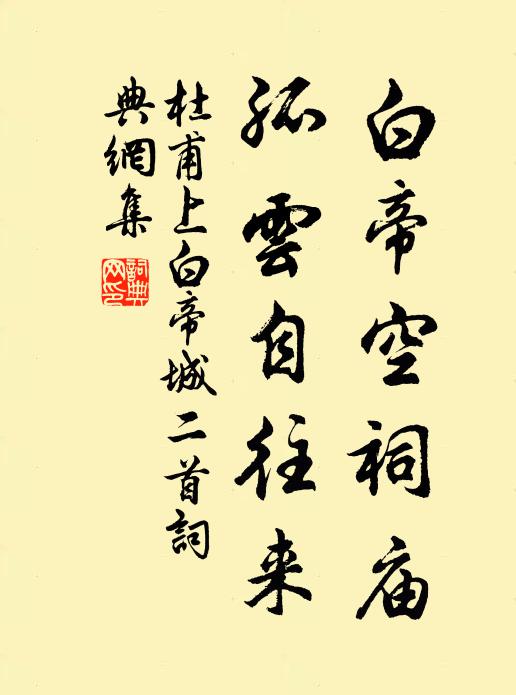 白帝空祠庙
孤雲自往来
杜甫上白帝城二首詞
典網集
詞典
网印